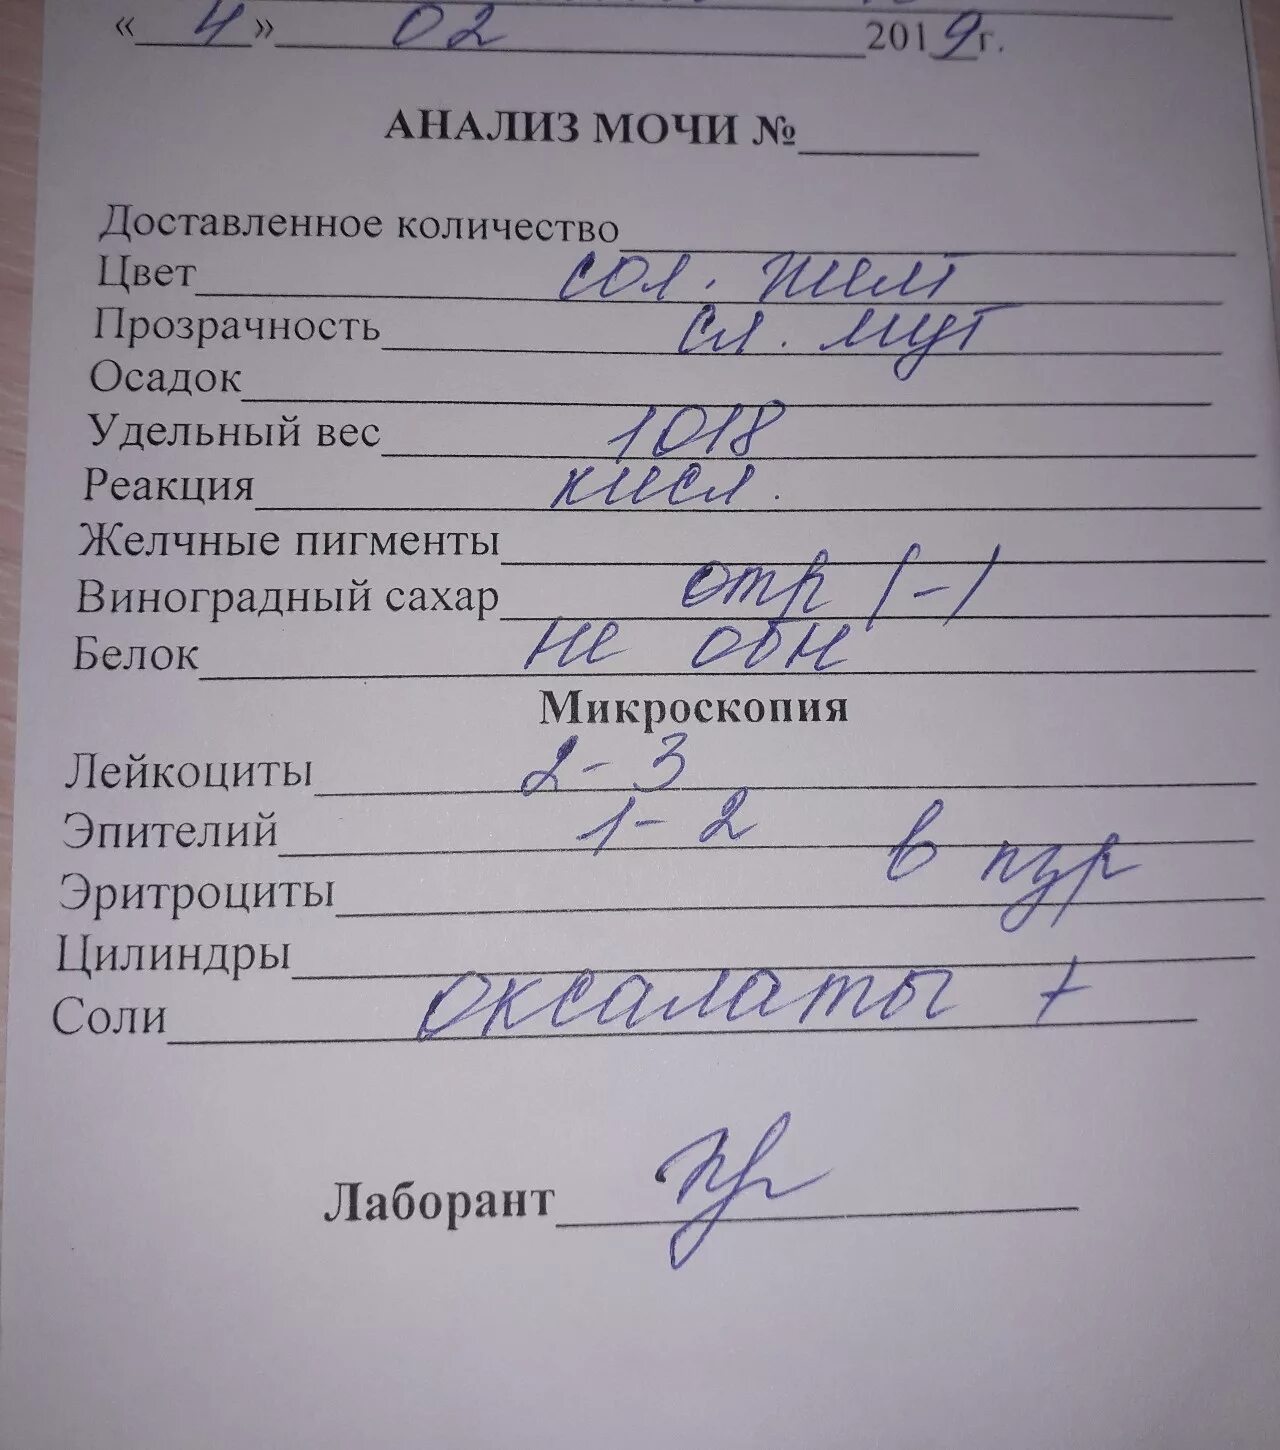 « 4 » 02 2019г.
АНАЛИЗ МОЧИ №
Доставленное количество
Цвет сол. желт
Прозрачность сл. мут
Осадок
Удельный вес 1018
Реакция кисл.
Желчные пигменты
Виноградный сахар отр (-)
Белок не обн
Микроскопия
Лейкоциты 2-3
Эпителий 1-2 в пзр
Эритроциты
Цилиндры
Соли оксалаты +
Лаборант